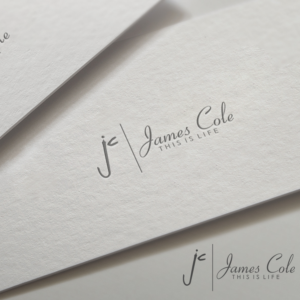 me
jc
James Cole
THIS IS LIFE
jc
James Cole
THIS IS LIFE